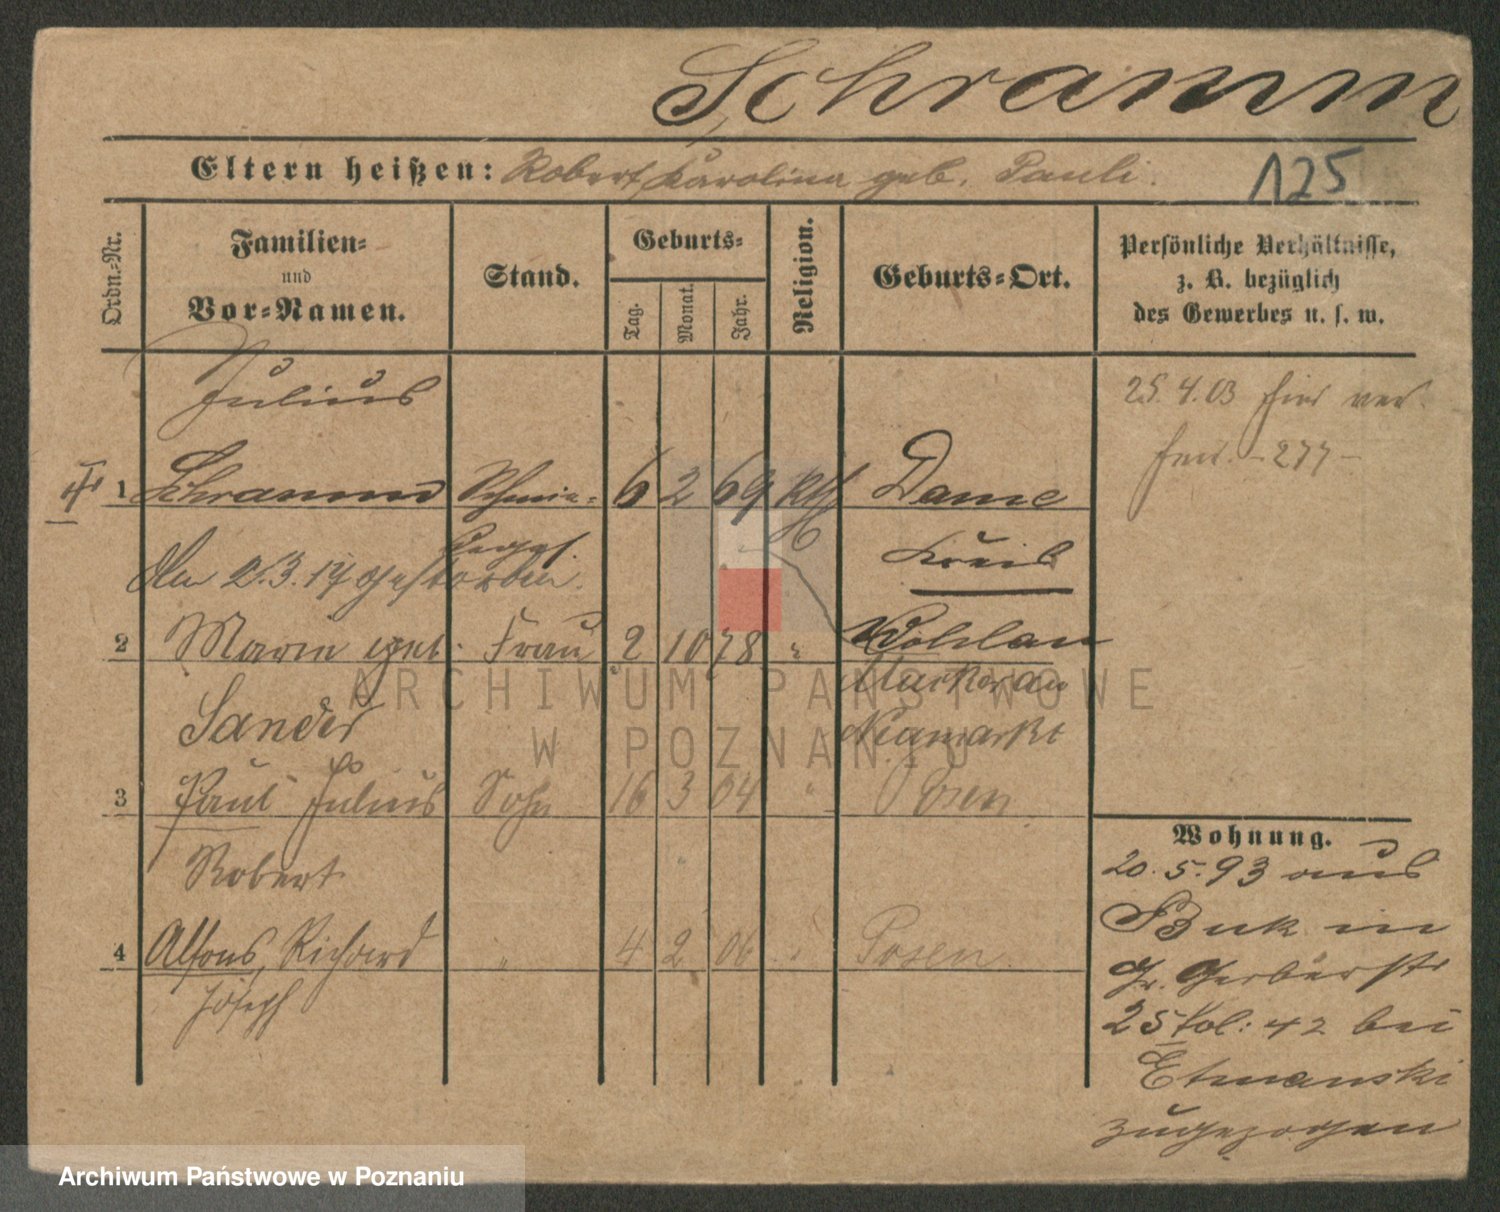 Schramm
Eltern heißen: Robert, Karolina geb. Pauli.
125
Ordn.=Nr.
Familien=
und
Vor=Namen.
Stand.
Geburts=
Tag.
Monat.
Jahr.
Religion.
Geburts=Ort.
Persönliche Verhältnisse,
z. B. bezüglich
des Gewerbes u. s. w.
Julius
25. 4. 03 hier ver.
- 277 -
1 Schramm 6 2 69 Kth Dame
Kreis
Den 2.3.17 gestorben.
2 Marie geb. Frau 2 10 78 " Wohlau
Sander Neumarkt
3 Paul Julius Sohn 16 3 04 " Posen
Robert
4 Alfons, Richard " 4 2 06 " Posen
Joseph
Wohnung.
20. 5. 93 aus
Buk in
Gr. Gerberstr
25 Kol: 42 bei
Etmanski
zugezogen
ARCHIWUM PAŃSTWOWE
W POZNANIU
Archiwum Państwowe w Poznaniu